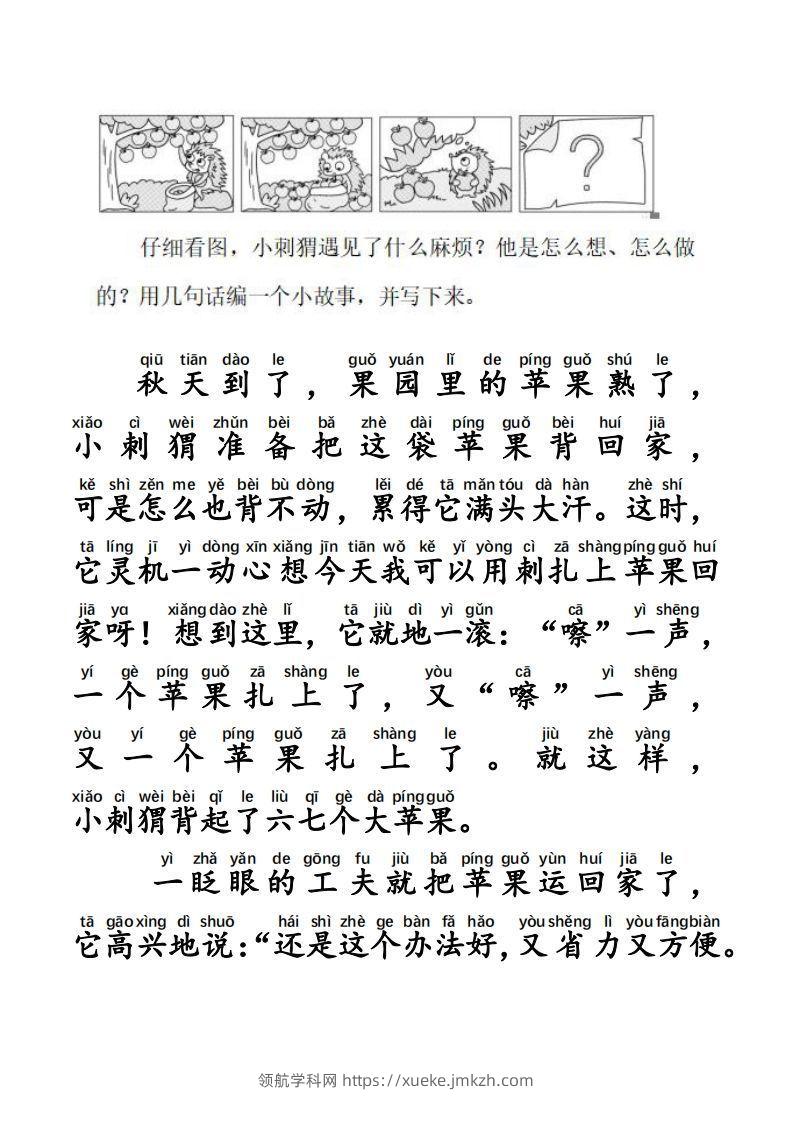 ?
仔细看图，小刺猬遇见了什么麻烦？他是怎么想、怎么做
的？用几句话编一个小故事，并写下来。
qiū tiān dào le guǒ yuán lǐ de píng guǒ shú le
秋天到了，果园里的苹果熟了，
xiǎo cì wèi zhǔn bèi bǎ zhè dài píng guǒ bèi huí jiā
小刺猬准备把这袋苹果背回家，
kě shì zěn me yě bèi bù dòng lěi dé tā mǎn tóu dà hàn zhè shí
可是怎么也背不动，累得它满头大汗。这时，
tā líng jī yì dòng xīn xiǎng jīn tiān wǒ kě yǐ yòng cì zā shàng píng guǒ huí
它灵机一动心想今天我可以用刺扎上苹果回
jiā yɑ xiǎng dào zhè lǐ tā jiù dì yì gǔn cā yì shēng
家呀！想到这里，它就地一滚：“嚓”一声，
yí gè píng guǒ zā shàng le yòu cā yì shēng
一个苹果扎上了，又“嚓”一声，
yòu yí gè píng guǒ zā shàng le jiù zhè yàng
又一个苹果扎上了。就这样，
xiǎo cì wèi bèi qǐ le liù qī gè dà píng guǒ
小刺猬背起了六七个大苹果。
yì zhǎ yǎn de gōng fu jiù bǎ píng guǒ yùn huí jiā le
一眨眼的工夫就把苹果运回家了，
tā gāo xìng dì shuō hái shì zhè ge bàn fǎ hǎo yòu shěng lì yòu fāng biàn
它高兴地说：“还是这个办法好，又省力又方便。
领航学科网 https://xueke.jmkzh.com